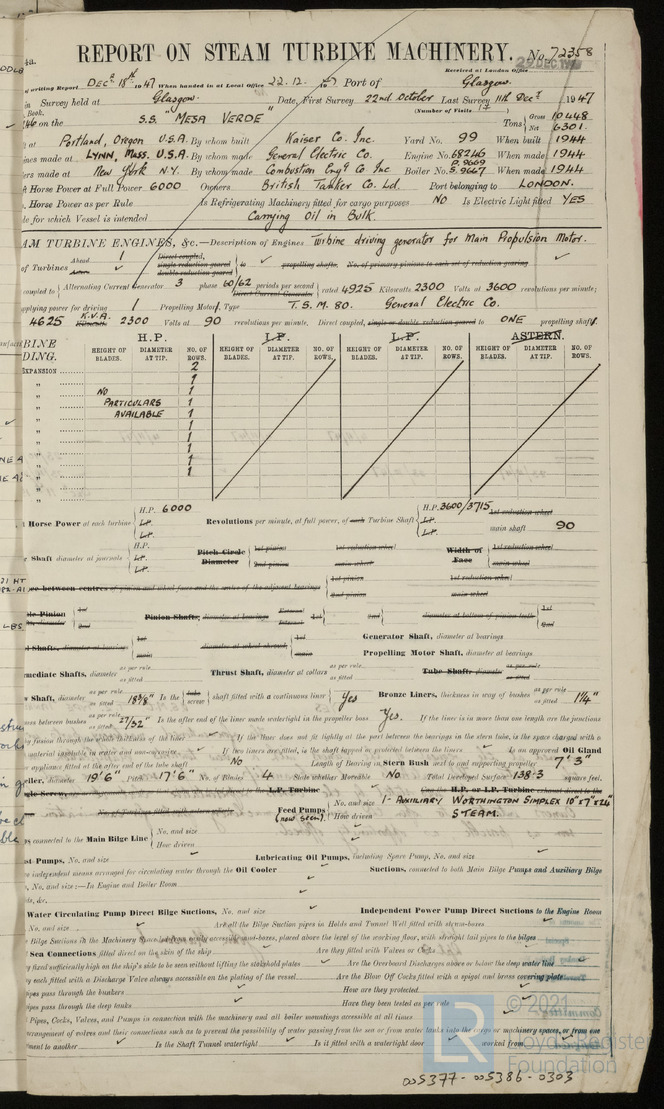 REPORT ON STEAM TURBINE MACHINERY. No. 72358
Received at London Office
29 DEC 1947
of writing Report Decr 18th 1947 When handed in at Local Office 22.12.1947 Port of Glasgow.
in Survey held at Glasgow. Date, First Survey 22nd October Last Survey 11th Decr 1947
Book. (Number of Visits 17)
on the S.S. "MESA VERDE" Tons Gross 10448
Net 6301.
at Portland, Oregon U.S.A. By whom built Kaiser Co. Inc. Yard No. 99 When built 1944
ines made at LYNN, Mass. U.S.A. By whom made General Electric Co. Engine No. 68246 When made 1944
ers made at New York N.Y. By whom made Combustion Engg Co Inc Boiler No. P.9669 S.9667 When made 1944
t Horse Power at Full Power 6000 Owners British Tanker Co. Ld. Port belonging to LONDON.
. Horse Power as per Rule Is Refrigerating Machinery fitted for cargo purposes NO Is Electric Light fitted YES
de for which Vessel is intended Carrying Oil in Bulk.
AM TURBINE ENGINES, &c.—Description of Engines Turbine driving generator for Main Propulsion Motor.
of Turbines Ahead 1 Direct coupled, single reduction geared double reduction geared to propelling shafts. No. of primary pinions to each set of reduction gearing
Astern
coupled to Alternating Current Generator 3 phase 60/62 periods per second Direct Current Generator rated 4925 Kilowatts 2300 Volts at 3600 revolutions per minute;
upplying power for driving 1 Propelling Motors, Type T.S.M. 80. General Electric Co.
4625 K.V.A. Kilowatts 2300 Volts at 90 revolutions per minute. Direct coupled, single or double reduction geared to ONE propelling shafts.
BINE DING. H.P. L.P. L.P. ASTERN.
HEIGHT OF BLADES. DIAMETER AT TIP. NO. OF ROWS. HEIGHT OF BLADES. DIAMETER AT TIP. NO. OF ROWS. HEIGHT OF BLADES. DIAMETER AT TIP. NO. OF ROWS. HEIGHT OF BLADES. DIAMETER AT TIP. NO. OF ROWS.
EXPANSION 2
1
NO 1
PARTICULARS 1
AVAILABLE 1
1
1
1
1
1
t Horse Power at each turbine H.P. 6000 L.P. L.P. Revolutions per minute, at full power, of each Turbine Shaft H.P. 3600/3715 L.P. L.P. 1st reduction wheel main shaft 90
r Shaft diameter at journals H.P. L.P. L.P. Pitch Circle Diameter 1st pinion 2nd pinion 1st reduction wheel main wheel Width of Face 1st reduction wheel main wheel
nce between centres of pinion and wheel faces and the centre of the adjacent bearings 1st pinion 2nd pinion 1st reduction wheel main wheel
Pinion Shafts, diameter at bearings External Internal 1st 2nd diameter at bottom of pinion teeth 1st 2nd
l Shafts, diameter at bearings 1st main diameter at wheel shroud 1st main Generator Shaft, diameter at bearings
Propelling Motor Shaft, diameter at bearings
rmediate Shafts, diameter as per rule as fitted Thrust Shaft, diameter at collars as per rule as fitted Tube Shaft, diameter as per rule as fitted
w Shaft, diameter as per rule as fitted 18 3/8" Is the tube screw shaft fitted with a continuous liner Yes Bronze Liners, thickness in way of bushes as per rule as fitted 1 1/4"
ness between bushes as per rule as fitted 27/32" Is the after end of the liner made watertight in the propeller boss Yes. If the liner is in more than one length are the junctions
y fusion through the whole thickness of the liner If the liner does not fit tightly at the part between the bearings in the stern tube, is the space charged with a
material insoluble in water and non-corrosive If two liners are fitted, is the shaft lapped or protected between the liners Is an approved Oil Gland
r appliance fitted at the after end of the tube shaft No Length of Bearing in Stern Bush next to and supporting propeller 7' 3"
eller, diameter 19' 6" Pitch 17' 6" No. of Blades 4 State whether Moveable No Total Developed Surface 138.3 square feet.
Feed Pumps (new seen). No. and size 1- Auxiliary Worthington Simplex 10" x 7" x 24"
How driven STEAM.
ps connected to the Main Bilge Line No. and size
How driven
st Pumps, No. and size Lubricating Oil Pumps, including Spare Pump, No. and size
independent means arranged for circulating water through the Oil Cooler Suctions, connected to both Main Bilge Pumps and Auxiliary Bilge
, No. and size:—In Engine and Boiler Room
ds, &c.
Water Circulating Pump Direct Bilge Suctions, No. and size Independent Power Pump Direct Suctions to the Engine Room
No. and size Are all the Bilge Suction pipes in Holds and Tunnel Well fitted with strum-boxes
Bilge Suctions in the Machinery Spaces led from easily accessible mud-boxes, placed above the level of the working floor, with straight tail pipes to the bilges
Sea Connections fitted direct on the skin of the ship Are they fitted with Valves or Cocks
y fixed sufficiently high on the ship's side to be seen without lifting the stokehold plates Are the Overboard Discharges above or below the deep water line
y each fitted with a Discharge Valve always accessible on the plating of the vessel Are the Blow Off Cocks fitted with a spigot and brass covering plate
ipes pass through the bunkers How are they protected
ipes pass through the deep tanks Have they been tested as per rule
Pipes, Cocks, Valves, and Pumps in connection with the machinery and all boiler mountings accessible at all times
rrangement of valves and their connections such as to prevent the possibility of water passing from the sea or from water tanks into the cargo or machinery spaces, or from one
ment to another Is the Shaft Tunnel watertight Is it fitted with a watertight door worked from
© 2021
Lloyd's Register
Foundation
005377-005386-0303